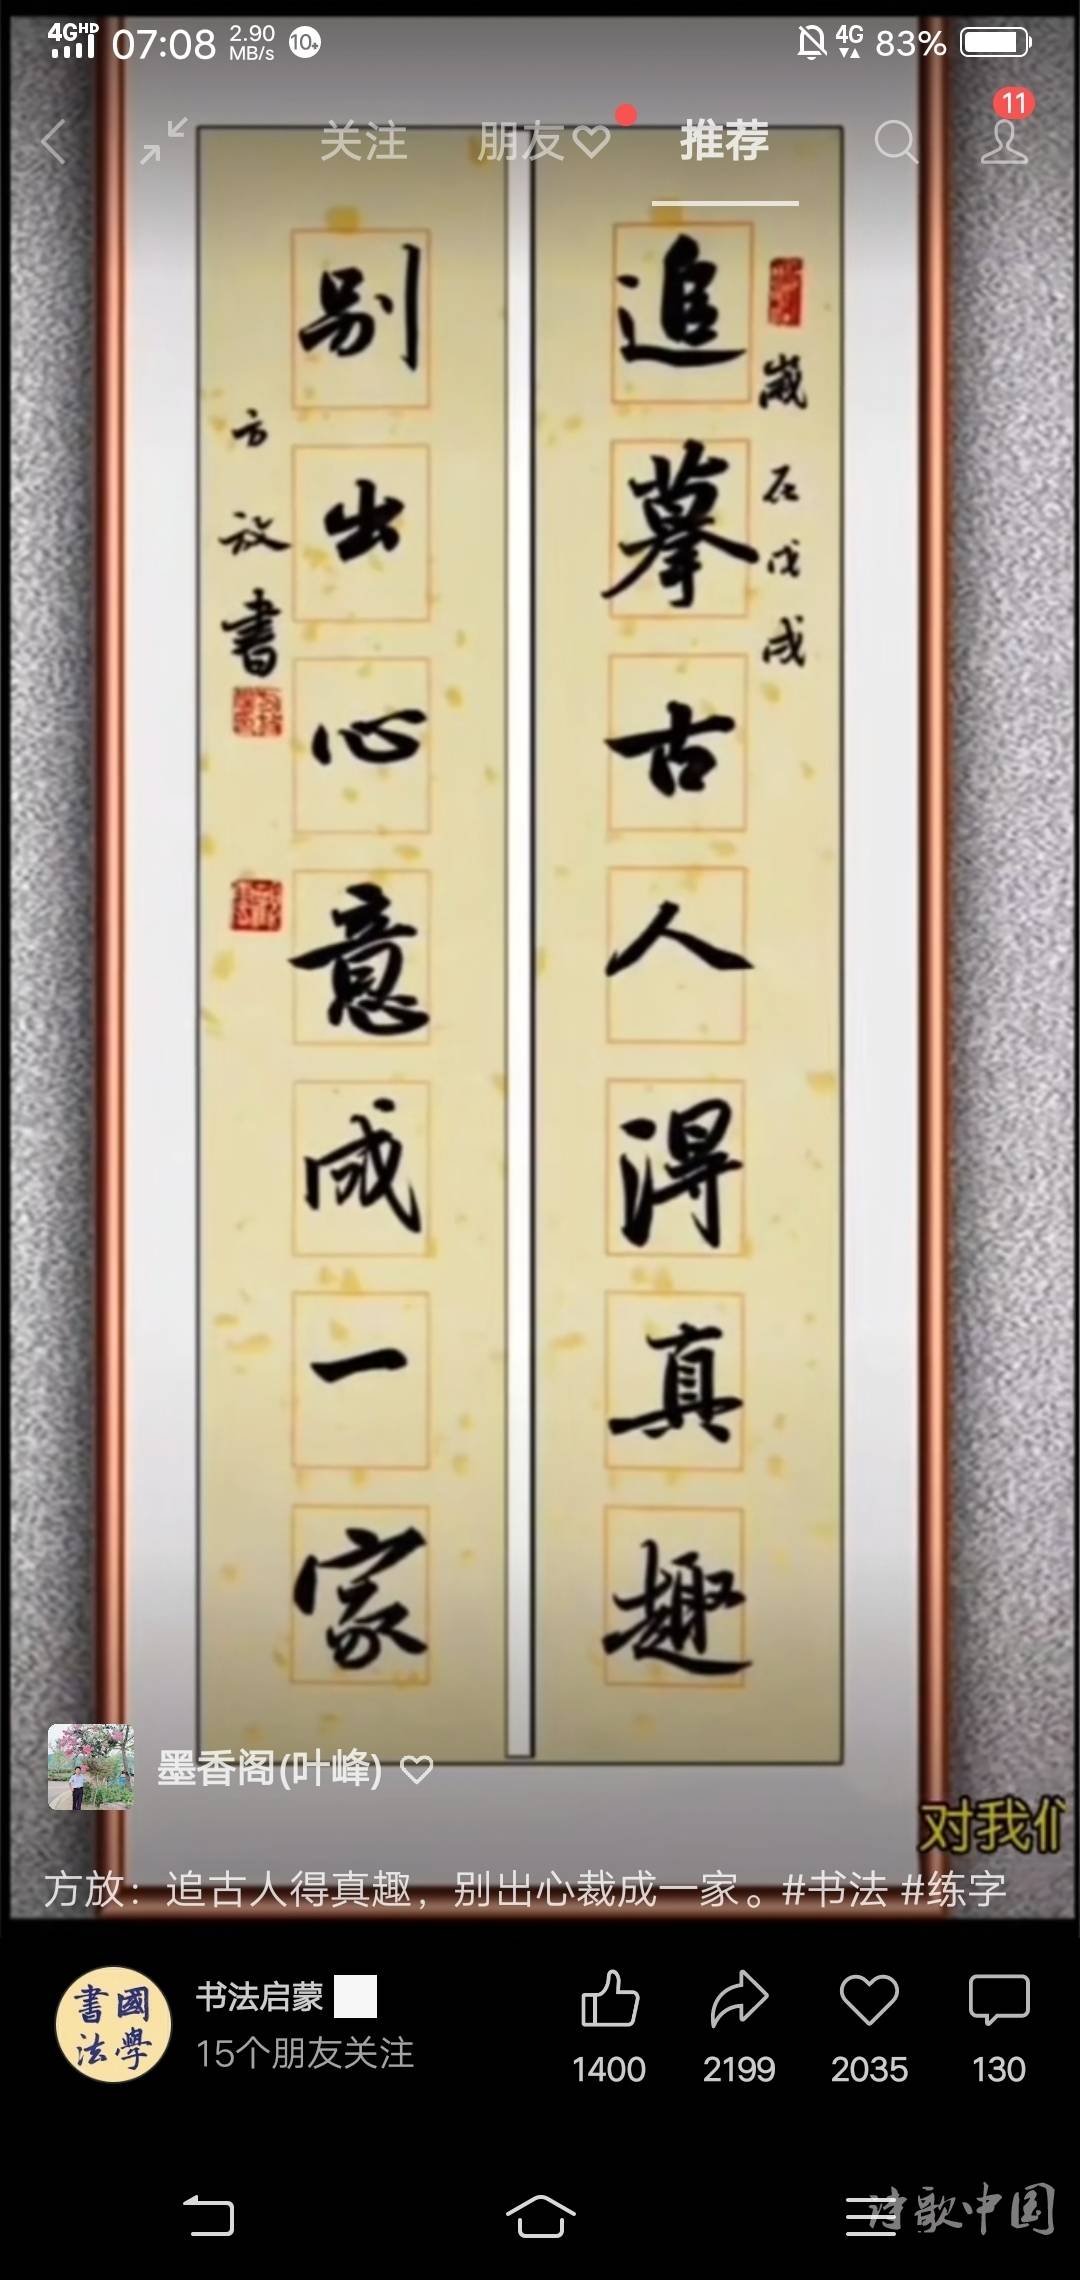 4G HD 07:08 2.90 MB/s 10+ 4G 83%
关注 朋友 推荐 11
追摹古人得真趣
歲在戊戌
别出心意成一家
方放書
墨香阁(叶峰)
对我们
方放：追古人得真趣，别出心裁成一家。#书法 #练字
國學書法
书法启蒙
15个朋友关注
1400 2199 2035 130
诗歌中国